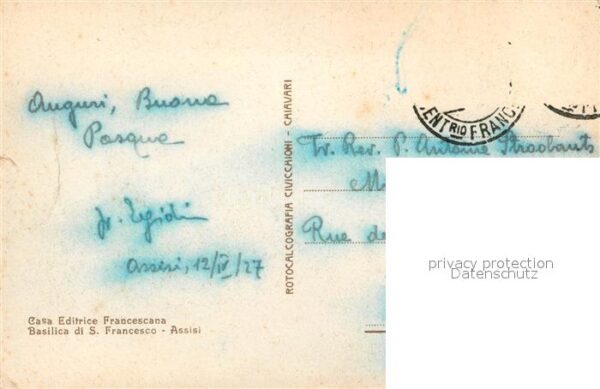 Auguri, Buona
Pasqua
fr. Egidio
Assisi, 12/IV/27
Casa Editrice Francescana
Basilica di S. Francesco - Assisi
ROTOCALCOGRAFIA CIVICCHIONI - CHIAVARI
CENT RIO FRANC
Tr. Rev. P. Antoine Straobants
Rue de
privacy protection
Datenschutz